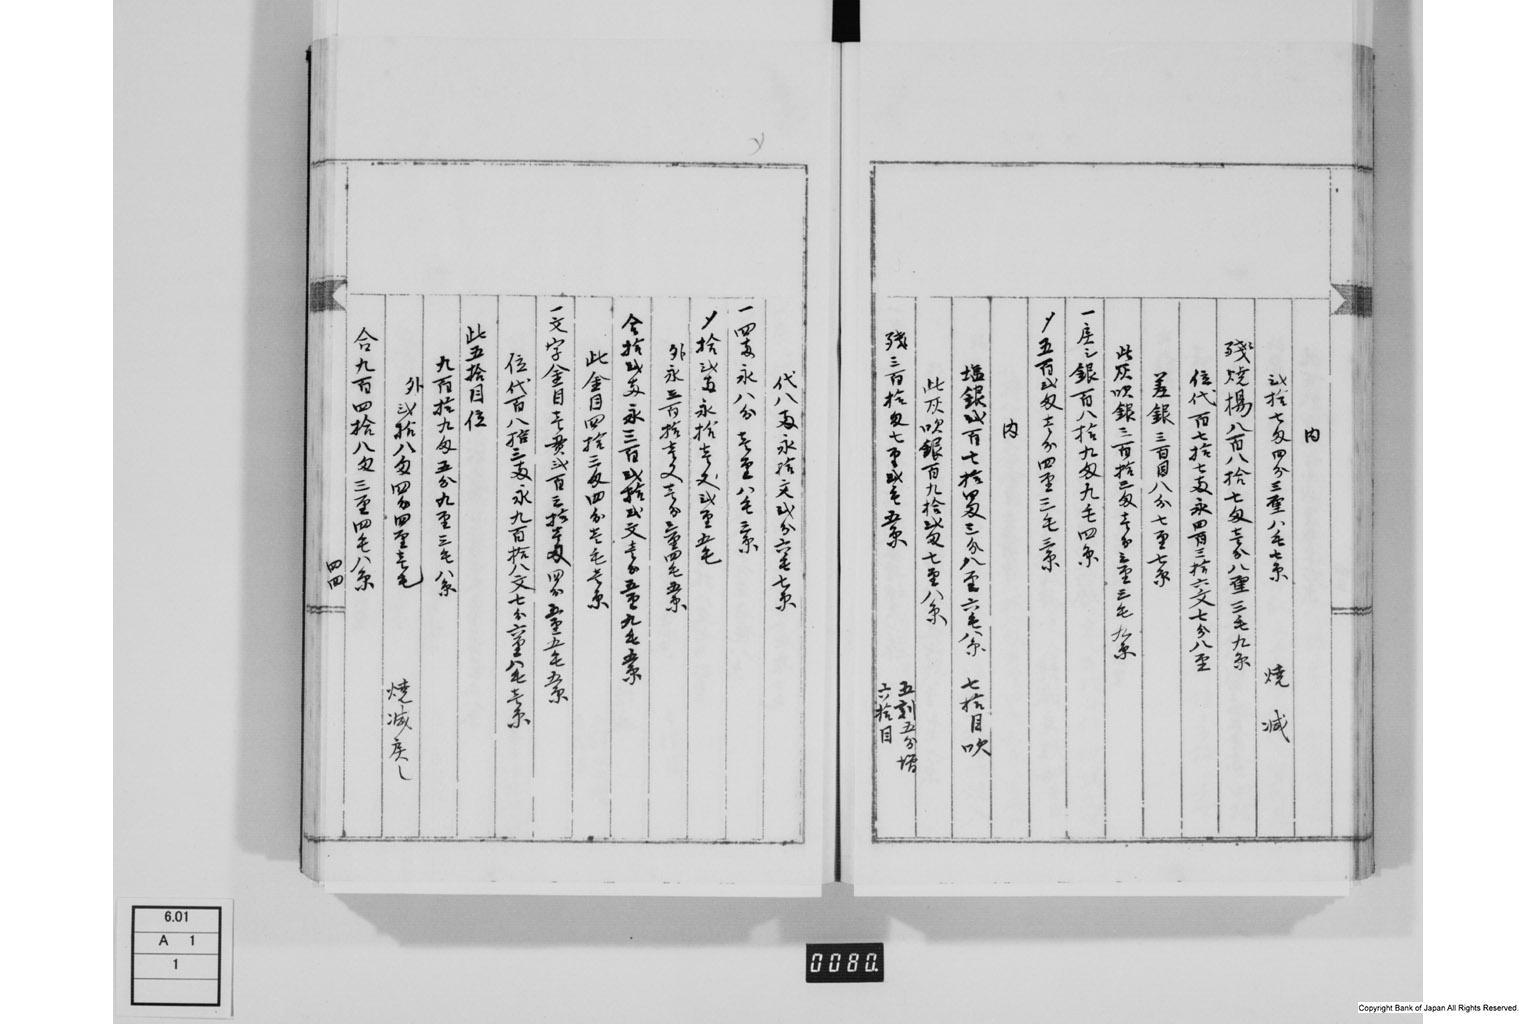 内
弐拾七匁四分三厘八毛七糸　焼減
残焼揚八百八拾七匁壱分八厘三毛九糸
位代百七拾七両永四百三拾六文七分八厘
差銀三百目八分七厘七糸
此灰吹銀三百拾三匁壱分三厘三毛九糸
一戻シ銀百八拾九匁九毛四糸
〆五百弐匁壱分四厘三毛三糸
内
塩銀弐百七拾四匁三分八厘六毛八糸　七拾目吹
此灰吹銀百九拾弐匁七厘八糸
残三百拾匁七厘弐毛五糸　五割五分増
六拾目
代八両永拾文弐分六毛七糸
一四両永八分壱厘八毛三糸
〆拾弐両永拾壱文弐厘五毛
外永三百拾壱文壱分三厘四毛五糸
合拾弐両永三百弐拾弐文壱分五厘九毛五糸
此金目四拾三匁四分壱毛壱糸
一文字金目壱貫弐百三拾壱匁四分五厘五毛五糸
位代百八拾三両永九百拾八文七分六厘八毛壱糸
此五拾目位
九百拾九匁五分九厘三毛八糸
外弐拾八匁四分四厘壱毛　焼減戻し
合九百四拾八匁三厘四毛八糸
四四
6.01
A 1
1
0080.
Copyright Bank of Japan All Rights Reserved.